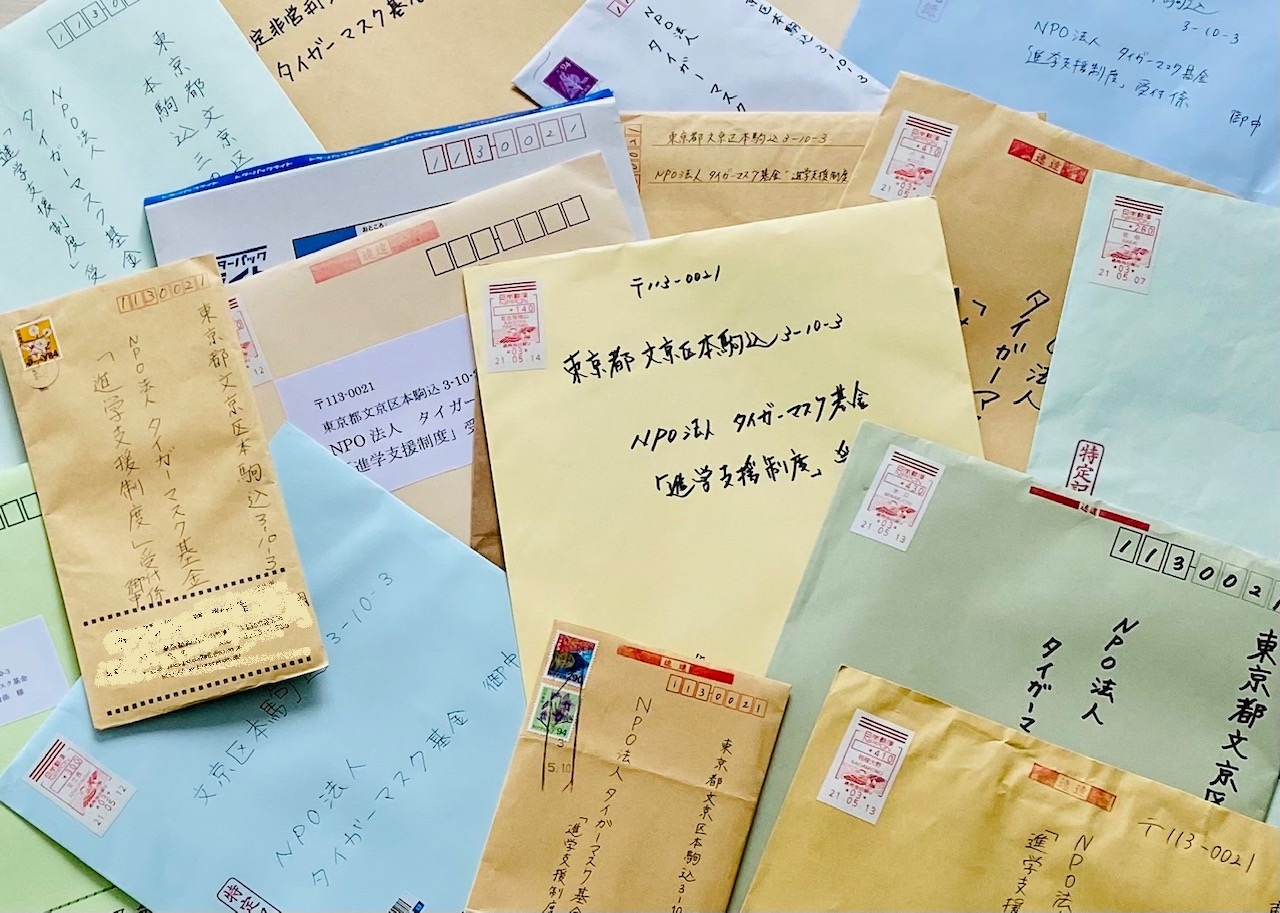 1130021
東京都文京区
本駒込三
NPO法人
タイガーマスク基金
「進学支援制度」受
定非営利
タイガーマスク基金
NPO法人
タイガーマスク
本駒込3-10-3
3-10-3
NPO法人 タイガーマスク基金
「進学支援制度」受付係
御中
1130021
おところ
東京都文京区本駒込3-10-3
NPO法人タイガーマスク基金"進学支援制度
日本郵便
NIPPON
410
速達
タイガーマ
法人
日本郵便
NIPPON
280
21 05.07
特定記
速達
〒113-0021
東京都文京区本駒込3-10-
NPO法人 タイガー
「進学支援制度」受
日本郵便
NIPPON
140
21.05.14
〒113-0021
東京都文京区本駒込3-10-3
NPO法人 タイガーマスク基金
「進学支援制度」
1130021
84
東京都文京区本駒込3-10-3
NPO法人タイガーマスク基金
「進学支援制度」受付係
御中
スク基金
様
3-10-3
文京区本駒
御中
NPO法人
タイガーマスク基金
特定
290
94
5.10
速達
1130021
東京都文京区本駒込3-10
NPO法人タイガーマスク基金
「進学支援制度
日本郵便
NIPPON
430
21.05.13
速達
1130021
東京都文京区
NPO法人
タイガーマ
日本郵便
NIPPON
410
21.05.13
速達
〒113-0021
NPO法
「進学支援